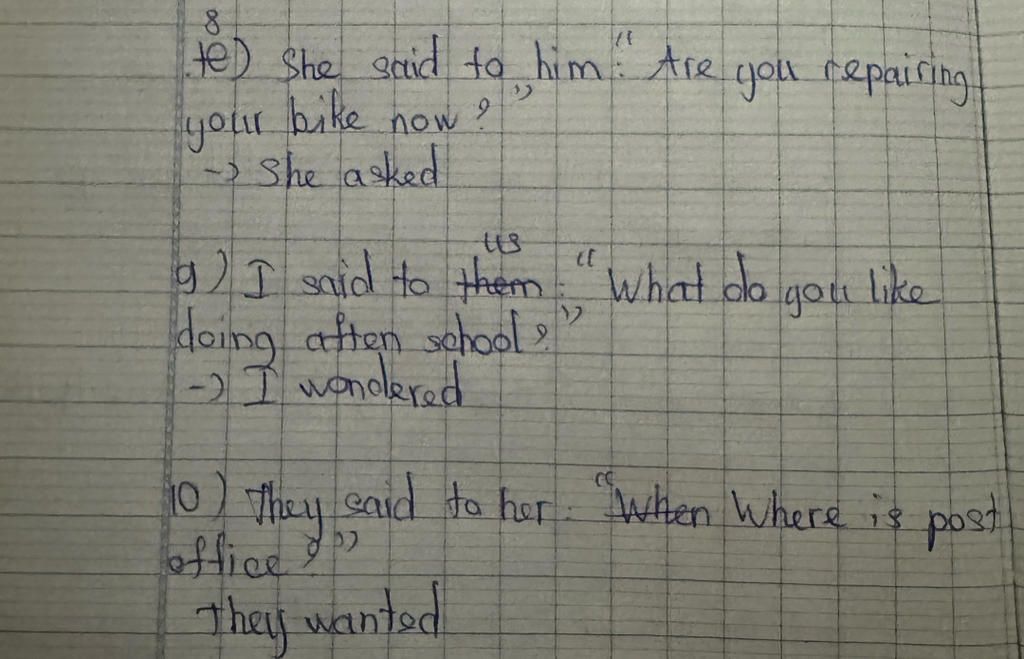 8
e) She said to him: "Are you repairing
your bike now?"
-> She asked
us
9) I said to them: "What do you like
doing aften school?"
-> I wondered
10) They said to her: "When Where is post
office?"
They wanted